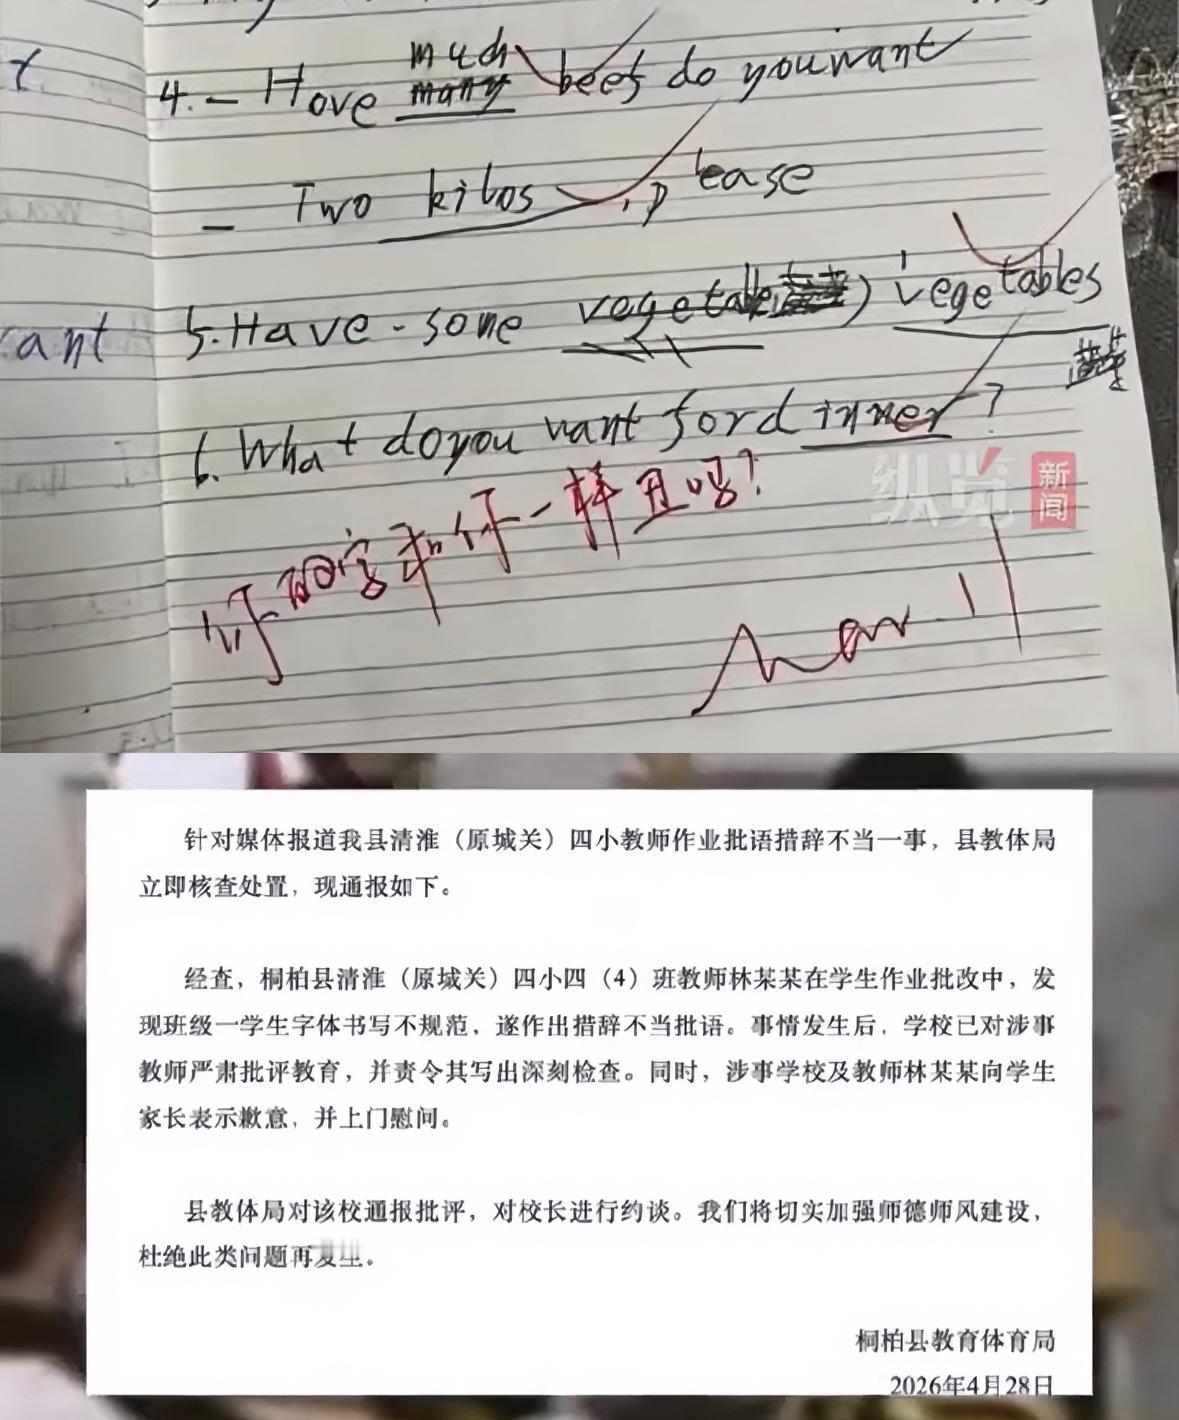 4. - Hove much beef do you want
- Two kilos , please
ant 5. Have - some vegetables
6. What do you want for dinner ?
你的字和你一样丑吗?
纵览 新闻
Mar 11
针对媒体报道我县清淮（原城关）四小教师作业批语措辞不当一事，县教体局
立即核查处置，现通报如下。
经查，桐柏县清淮（原城关）四小四（4）班教师林某某在学生作业批改中，发
现班级一学生字体书写不规范，遂作出措辞不当批语。事情发生后，学校已对涉事
教师严肃批评教育，并责令其写出深刻检查。同时，涉事学校及教师林某某向学生
家长表示歉意，并上门慰问。
县教体局对该校通报批评，对校长进行约谈。我们将切实加强师德师风建设，
杜绝此类问题再发生。
桐柏县教育体育局
2026年4月28日